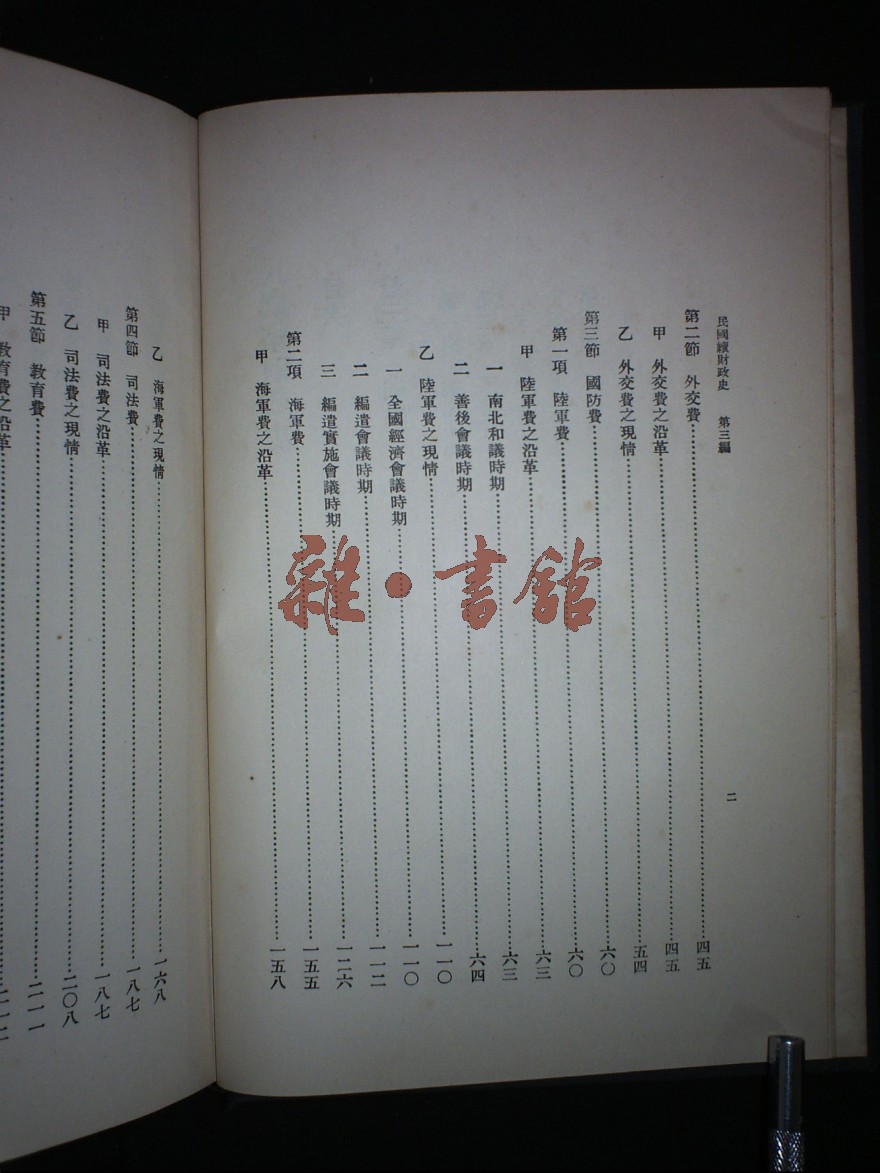 民國續財政史 第三編
二
第二節 外交費 四五
甲 外交費之沿革 四五
乙 外交費之現情 五四
第三節 國防費 六〇
第一項 陸軍費 六〇
甲 陸軍費之沿革 六三
一 南北和議時期 六三
二 善後會議時期 六四
乙 陸軍費之現情 一一〇
一 全國經濟會議時期 一一〇
二 編遣會議時期 一一二
三 編遣實施會議時期 一二六
第二項 海軍費 一五五
甲 海軍費之沿革 一五八
乙 海軍費之現情 一六八
第四節 司法費 一八七
甲 司法費之沿革 一八七
乙 司法費之現情 二〇八
第五節 教育費 二一一
甲 教育費之沿革 二一二
雜·書館